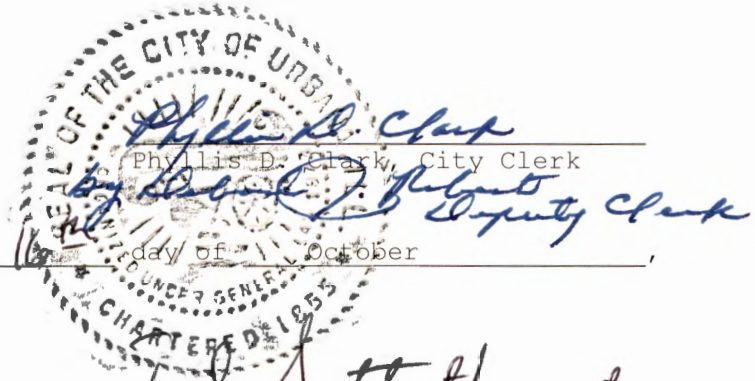 SEAL OF THE CITY OF URBA
Phyllis D. Clark
Phyllis D. Clark, City Clerk
by Roberts
Deputy Clerk
16th day of October ,
NIZED UNDER GENERAL
CHARTERED 1855